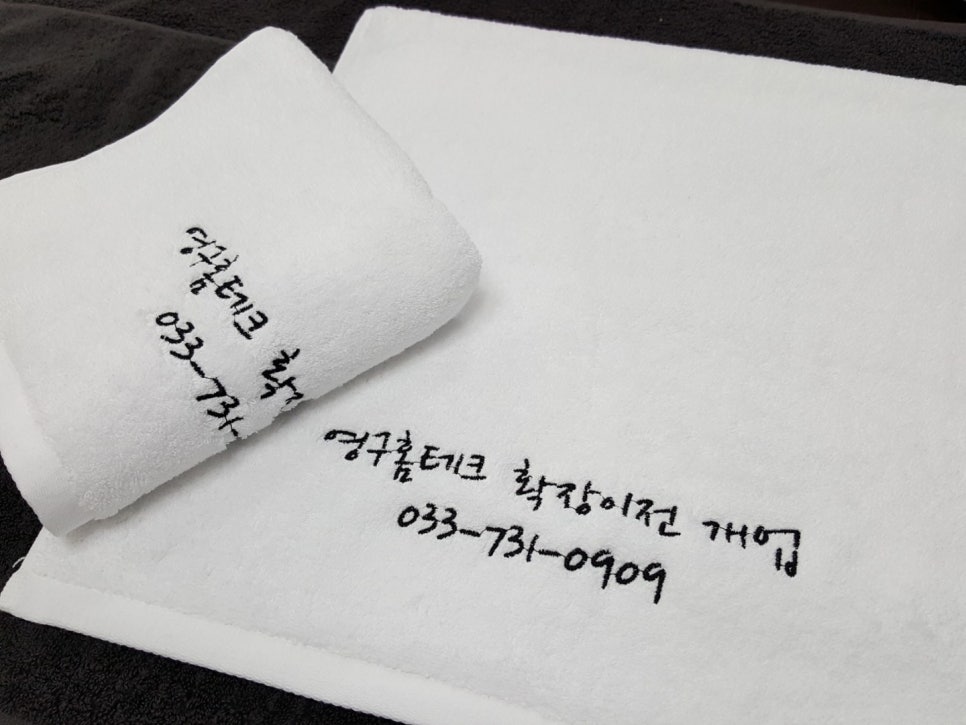 영구홈테크 확
033-731-
영구홈테크 확장이전 개업
033-731-0909